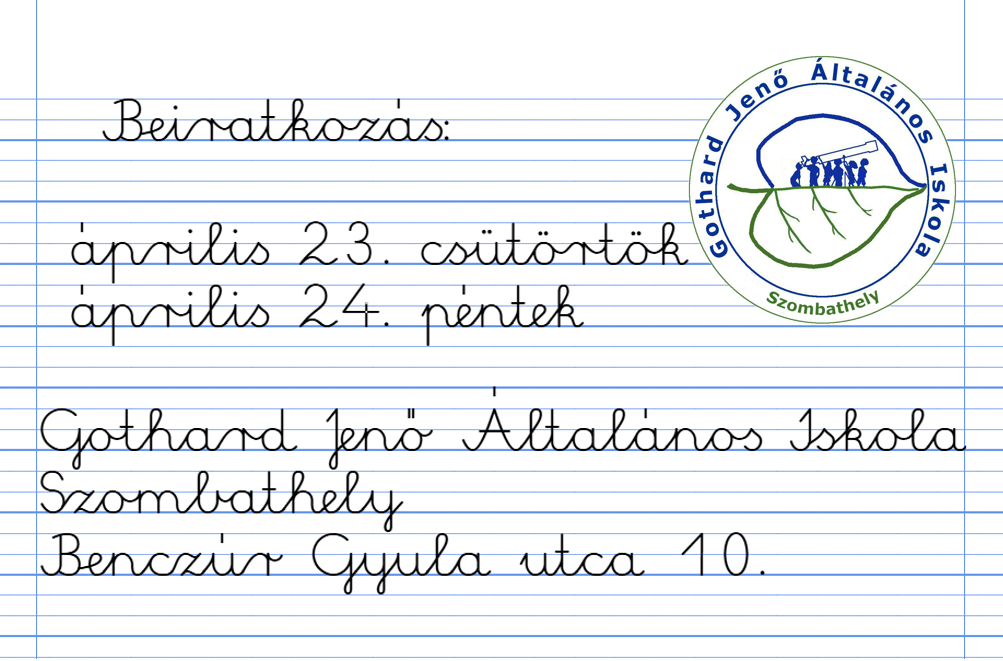 Beiratkozás:
április 23. csütörtök
április 24. péntek
Gothard Jenő Általános Iskola
Szombathely
Benczúr Gyula utca 10.
Gothard Jenő Általános Iskola
Szombathely